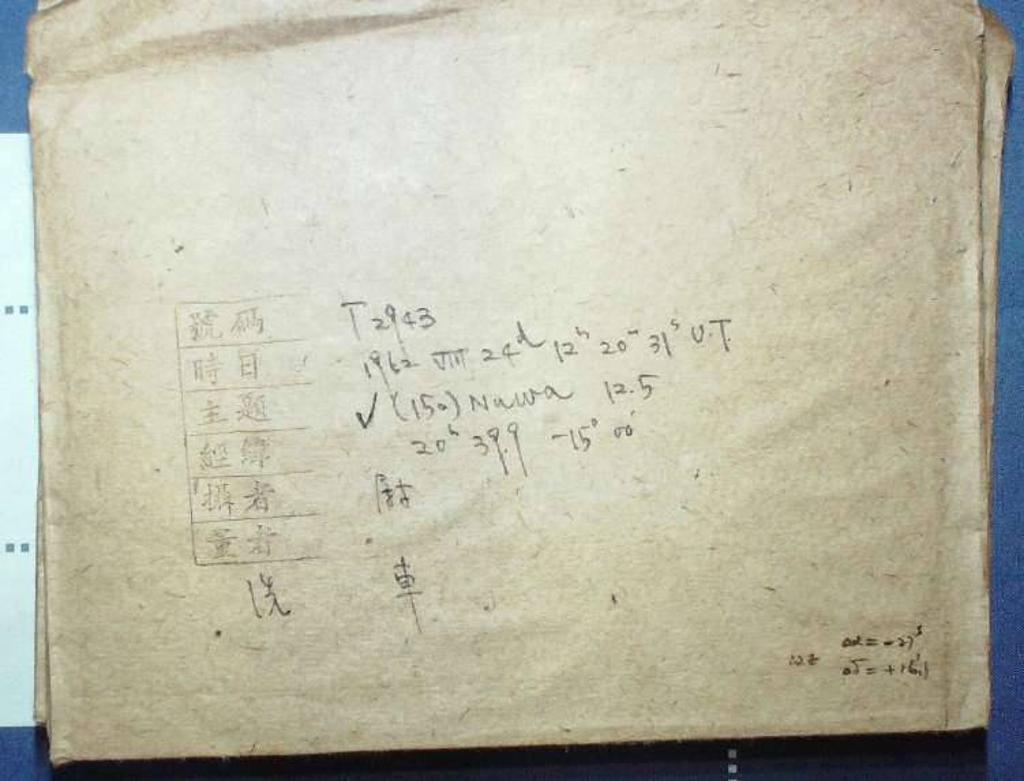 號碼 T 2943
時日 1962 VIII 24d 12h 20m 31s U.T.
主題 ✓ (150) Nuwa 12.5
經緯 20h 39.9 -15° 00'
攝者
量者
洗 車
12.2 Δα = -27s
Δδ = +16.1'